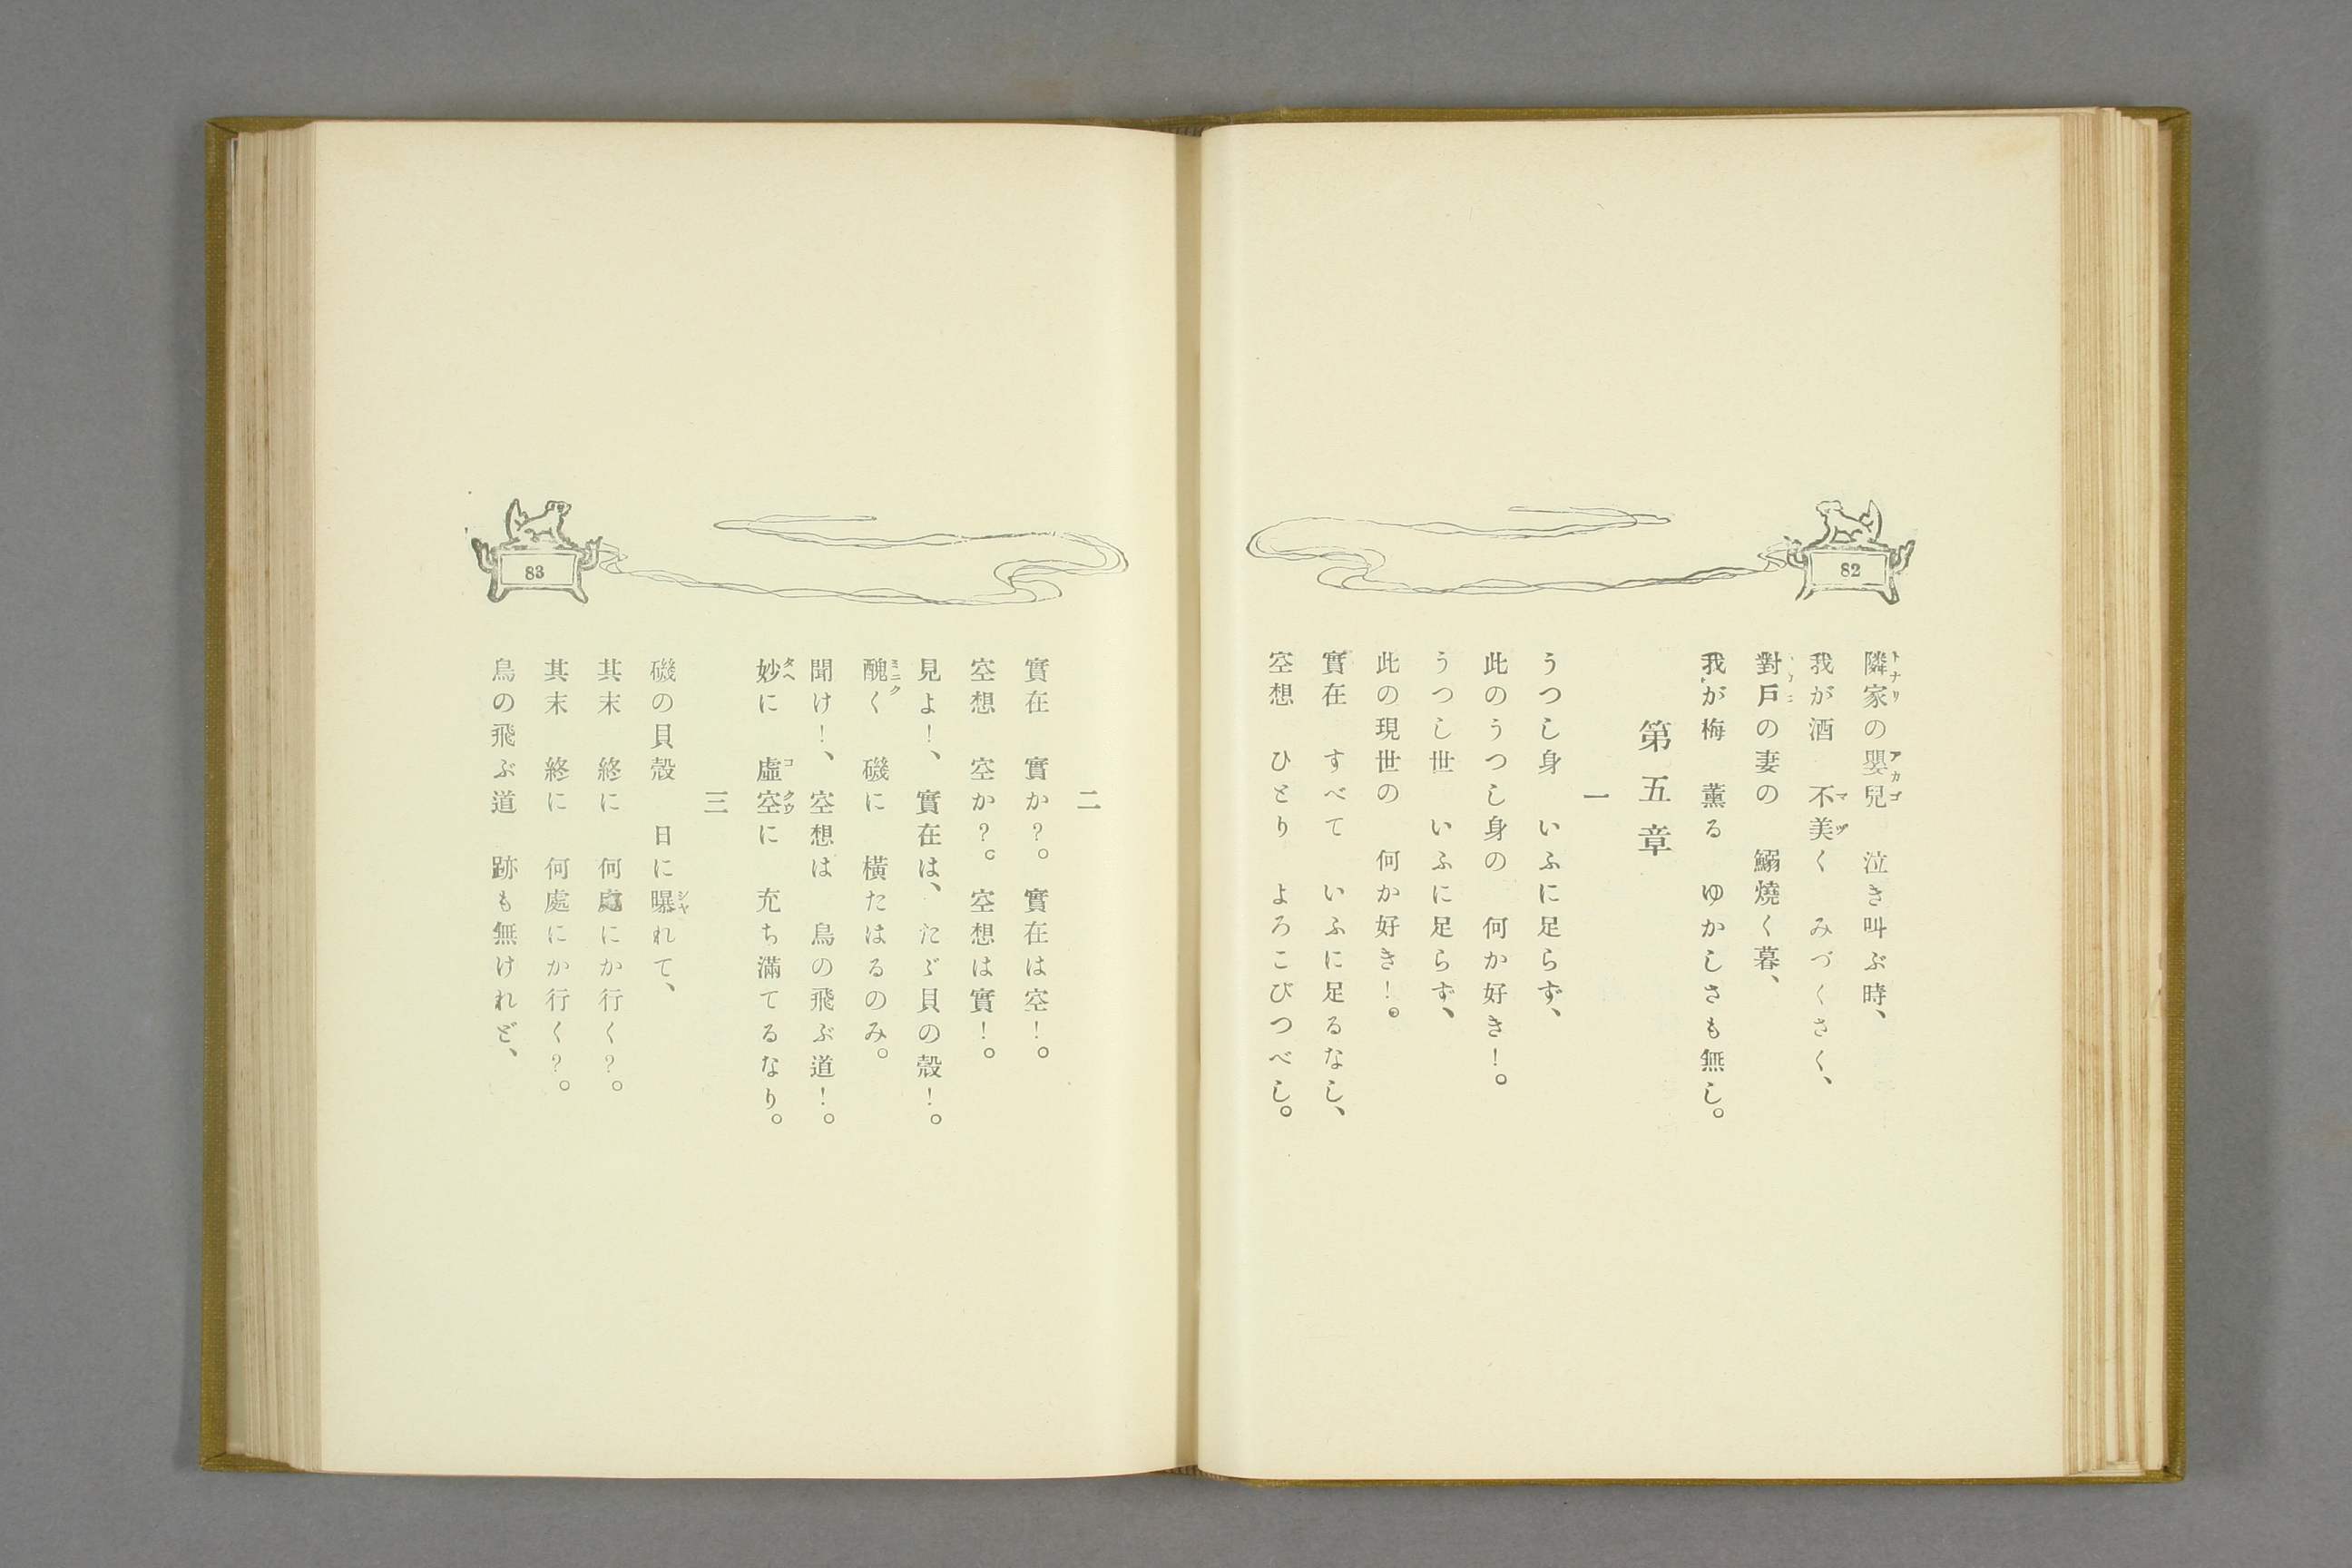 82
隣家の嬰兒　泣き叫ぶ時、
我が酒　不美く　みづくさく、
對戶の妻の　鰯燒く暮、
我が梅　薰る　ゆかしさも無し。
第五章
一
うつし身　いふに足らず、
此のうつし身の　何か好き！。
うつし世　いふに足らず、
此の現世の　何か好き！。
實在　すべて　いふに足るなし、
空想　ひとり　よろこびつべし。
83
二
實在　實か？。實在は空！。
空想　空か？。空想は實！。
見よ！、實在は、たゞ貝の殼！。
醜く　磯に　橫たはるのみ。
聞け！、空想は　鳥の飛ぶ道！。
妙に　虛空に　充ち滿てるなり。
三
磯の貝殼　日に曝れて、
其末　終に　何處にか行く？。
其末　終に　何處にか行く？。
鳥の飛ぶ道　跡も無けれど、